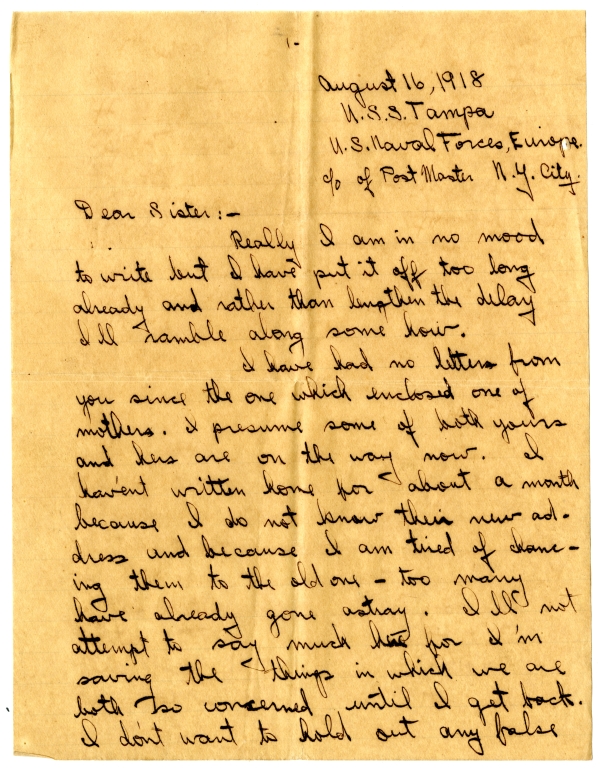 1-
August 16, 1918
U.S.S. Tampa
U.S. Naval Forces, Europe.
c/o of Post Master N.Y. City.
Dear Sister:-
Really I am in no mood
to write but I have put it off too long
already and rather than lengthen the delay
I'll ramble along some how.
I have had no letters from
you since the one which enclosed one of
mothers. I presume some of both yours
and hers are on the way now. I
haven't written home for about a month
because I do not know their new ad-
dress and because I am tired of chanc-
ing them to the old one - too many
have already gone astray. I'll not
attempt to say much here for I'm
saving the things in which we are
both so concerned until I get back.
I don't want to hold out any false